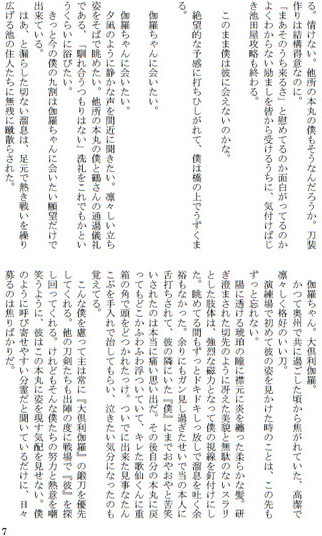 る。情けない。他所の本丸の僕もそうなんだろうか、刀装
作りは結構得意なのに。
「まあそのうち来るさ」と慰めてるのか面白がってるのか
よくわからない励ましを皆から受けるうちに、気付けばじ
き池田屋攻略も終わる。
このまま僕は彼に会えないのかな。
絶望的な予感に打ちひしがれて、僕は橋の上でうずくま
る。
伽羅ちゃんに会いたい。
伽羅ちゃんに会いたい。
夕凪のように静かな声を間近に聞きたい。凛々しい立ち
姿をそばで眺めたい。他所の本丸の僕と鶴さんの通過儀礼
である、「馴れ合うつもりはない」洗礼をこれでもかとい
うくらいに浴びたい。
きっと今の僕の九割は伽羅ちゃんに会いたい願望だけで
出来ている。
はあ、と漏らした切ない溜息は、足元で熱き戦いを繰り
広げる池の住人たちに無残に蹴散らされた。
伽羅ちゃん。大倶利伽羅。
かつて奥州で共に過ごした頃から焦がれていた、高潔で
凛々しく格好のいい刀。
演練場で初めて彼の姿を見かけた時のことは、この先も
ずっと忘れない。
陽に透ける琥珀の瞳に襟元に炎を纏った柔らかな髪。研
ぎ澄まされた切先のように冴えた美貌と無駄のないスラリ
とした肢体は、強烈な磁力となって僕の視線を釘付けにし
た。眺めてる間もずっとドキドキしっ放しで溜息を吐く余
裕もなかった。余りにもガン見し過ぎたせいで当の本人に
舌打ちされて、彼の隣にいた『僕』にまでおやおやと苦笑
いされたのは本当に痛い思い出だ。その後自分の本丸に戻
ってもどこかふわふわ浮ついていて、キレた歌仙くんに重
箱の角で頭をどつかれたっけ。ついでに出来た見事なたん
こぶを手入れで治してもらい、泣きたい気分になったのも
覚えてる。
こんな僕を慮って主は常に『大倶利伽羅』の鍛刀を優先
してくれる。他の刀剣たちも出陣の度に戦場で『彼』を探
し回ってくれる。けれどもそんな僕たちの努力と熱意を嘲
笑うように、彼はこの本丸に姿を現す気配を見せない。僕
のように呼び寄せやすい分霊だと聞いているだけに、日々
募るのは焦りばかりだ。
7